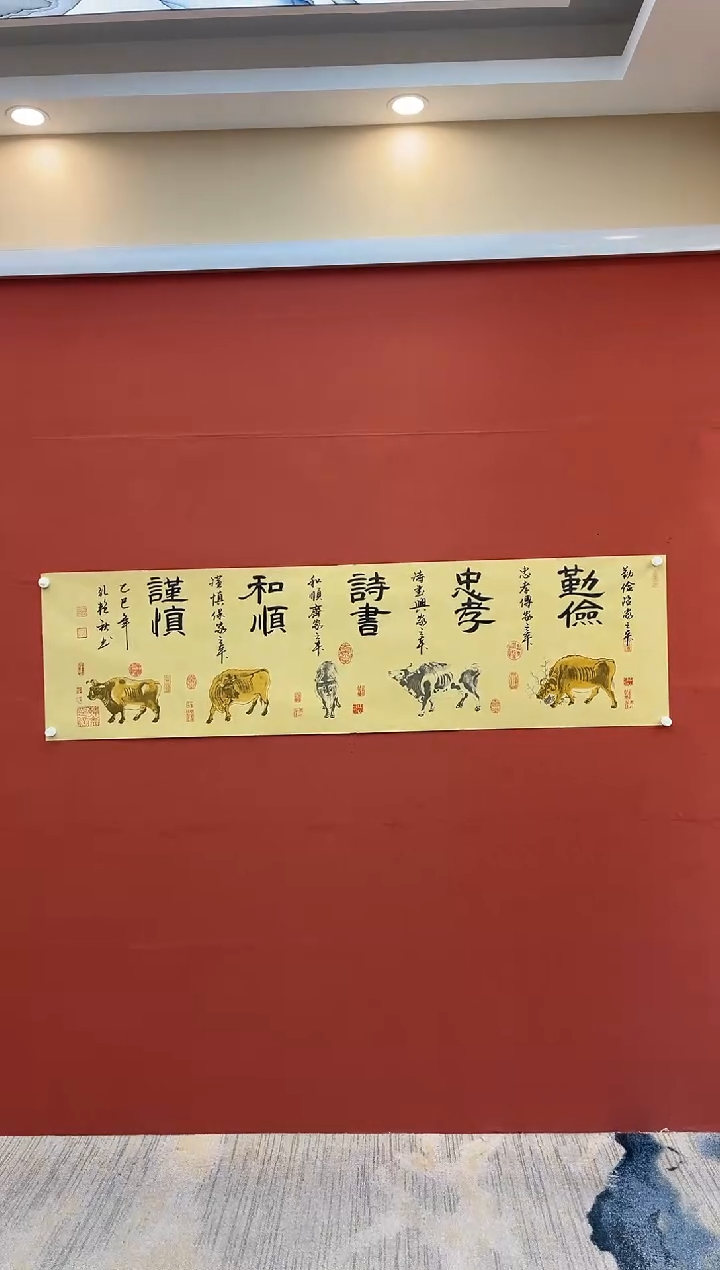 勤儉治家之本
勤儉
忠孝傳家之本
忠孝
詩書興家之本
詩書
和順齊家之本
和順
謹慎保家之本
謹慎
乙巳年